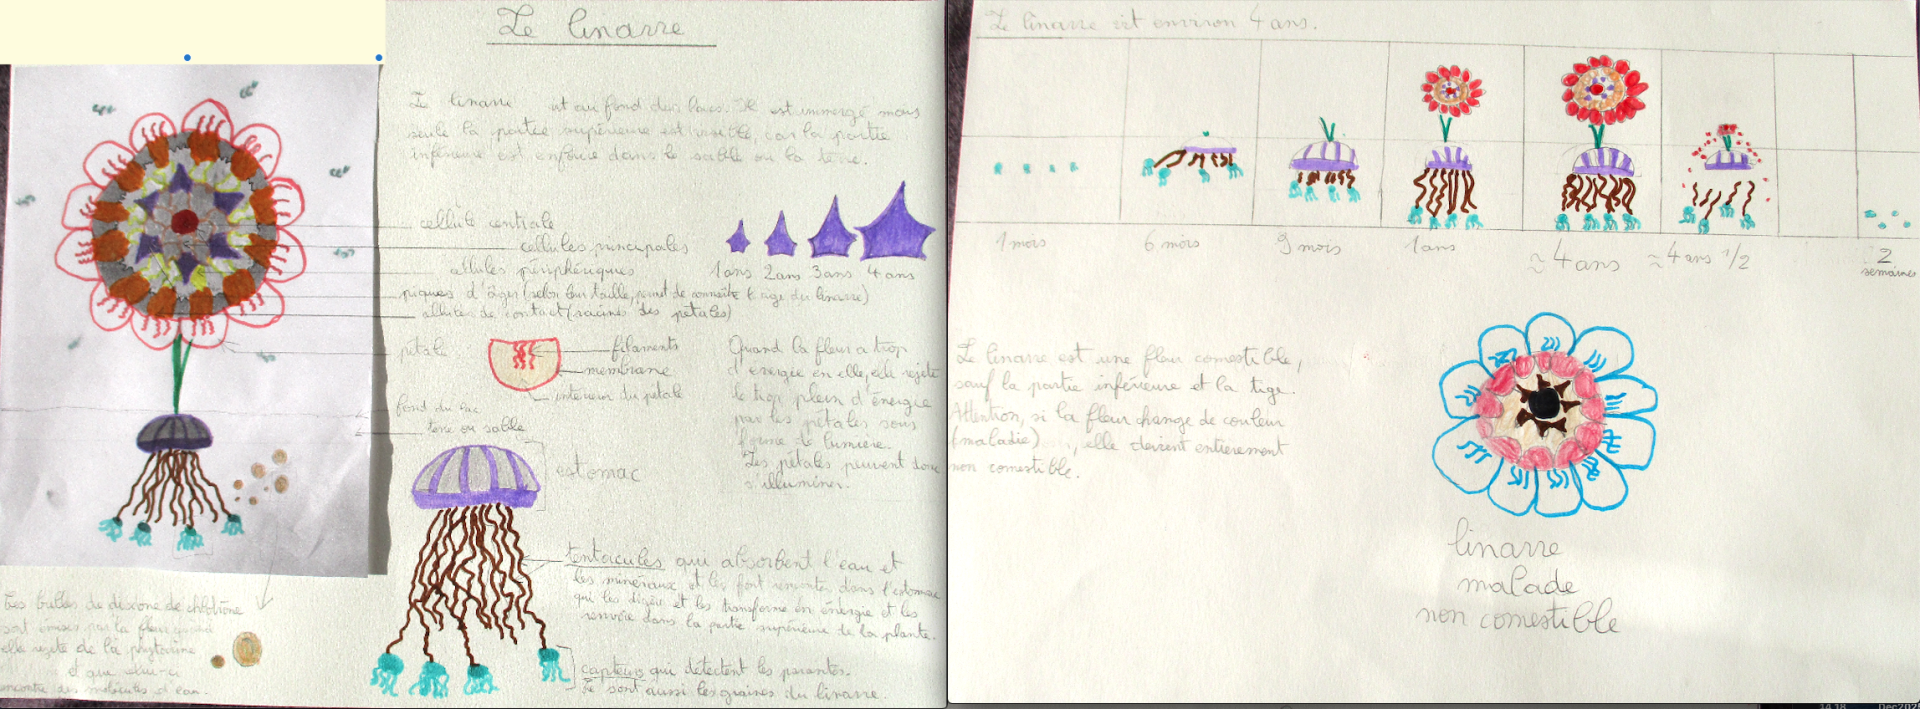 Le linarre
Le linarre vit au fond des lacs. Il est immergé mais
seule la partie supérieure est visible, car la partie
inférieure est enfouie dans le sable ou la terre.
cellule centrale
cellules principales
cellules périphériques
piques d'âges (selon leur taille, permet de connaître l'âge du linarre)
cellules de contact (racines des pétales)
pétale
1 ans 2 ans 3 ans 4 ans
filaments
membrane
intérieur du pétale
fond du lac
terre ou sable
Quand la fleur a trop
d'énergie en elle, elle rejete
le trop plein d'énergie
par les pétales sous
forme de lumière.
Les pétales peuvent donc
s'illuminer.
estomac
tentacules qui absorbent l'eau et
les minéraux et les font remonter dans l'estomac
qui les digère et les transforme en énergie et les
renvoie dans la partie supérieure de la plante.
capteurs qui détectent les parasites.
Ce sont aussi les graines du linarre.
Les bulles de dioxone de chlotrione
sont émises par la fleur quand
elle rejete de la
et que celui-ci
rencontre des molécules d'eau.
Le linarre vit environ 4 ans.
1 mois
6 mois
9 mois
1 ans
≈ 4 ans
≈ 4 ans 1/2
2
semaines
Le linarre est une fleur comestible,
sauf la partie inférieure et la tige.
Attention, si la fleur change de couleur
(maladie), elle devient entièrement
non comestible.
linarre
malade
non comestible
14 18